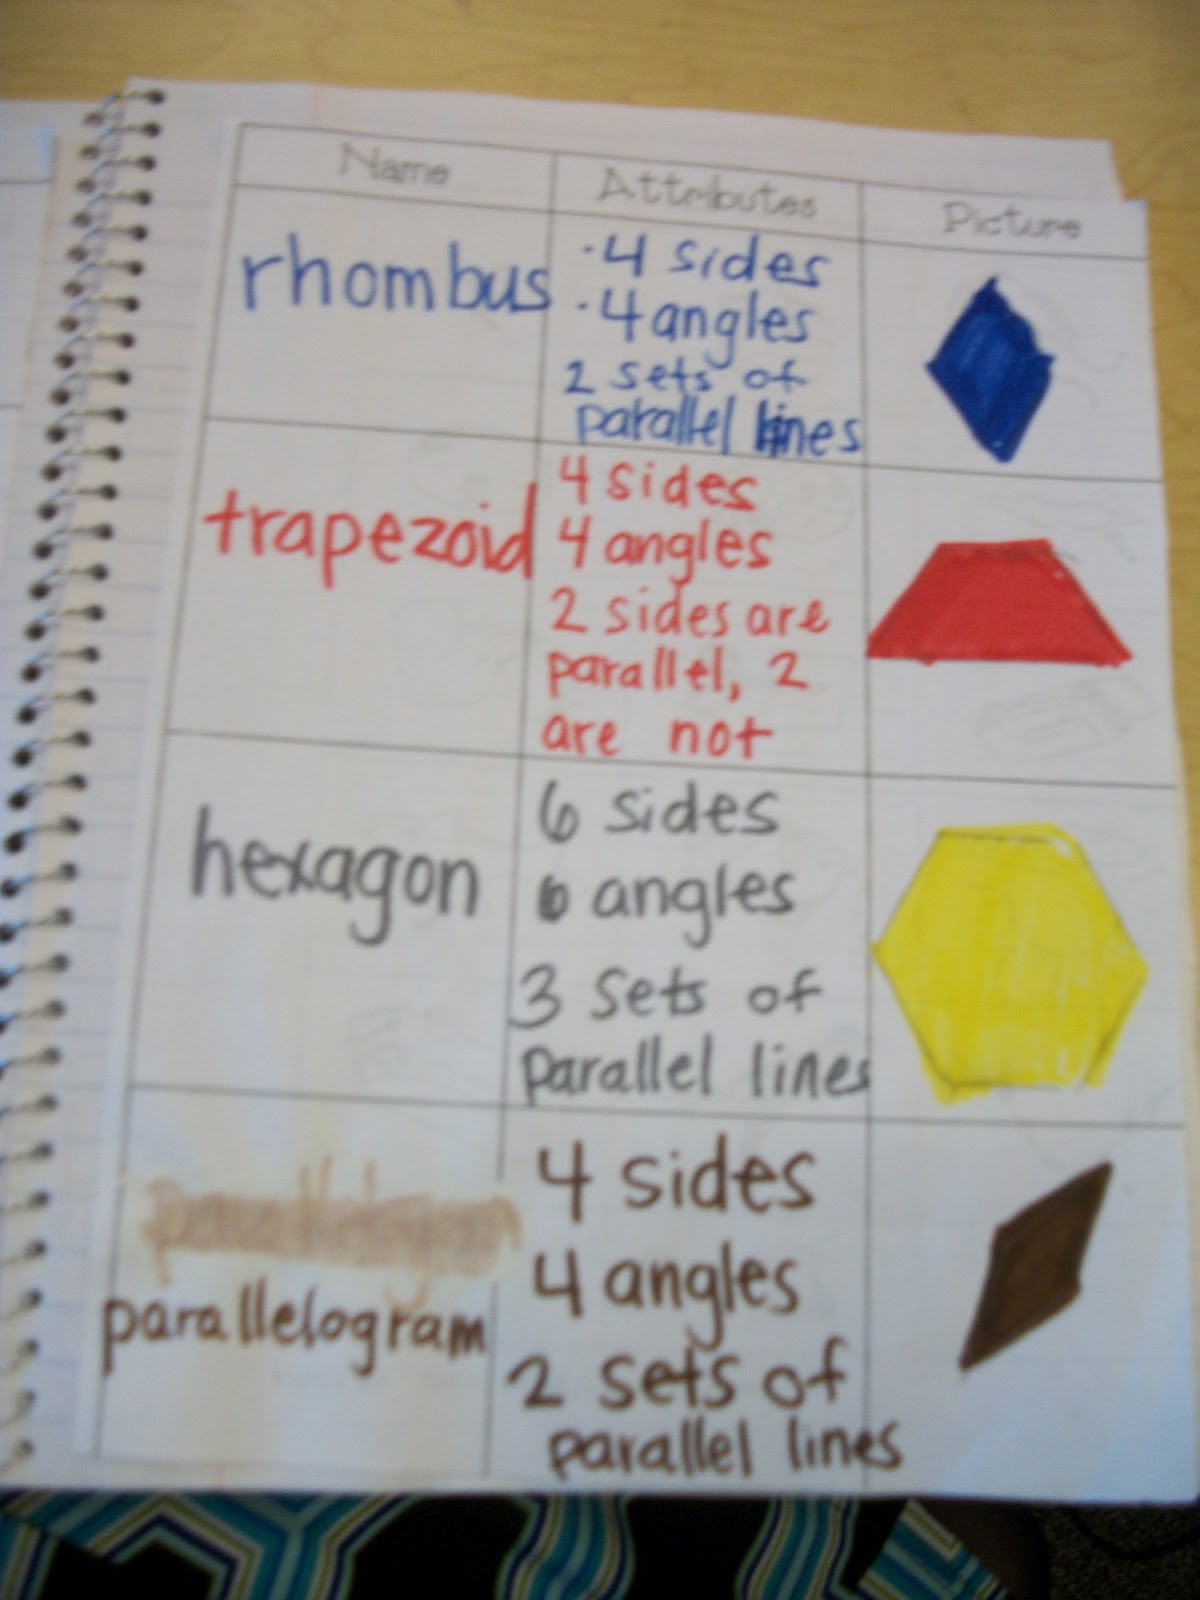 Name Attributes Picture
rhombus
· 4 sides
· 4 angles
2 sets of
parallel lines
trapezoid
4 sides
4 angles
2 sides are
parallel, 2
are not
hexagon
6 sides
6 angles
3 sets of
parallel lines
parallelogram
4 sides
4 angles
2 sets of
parallel lines